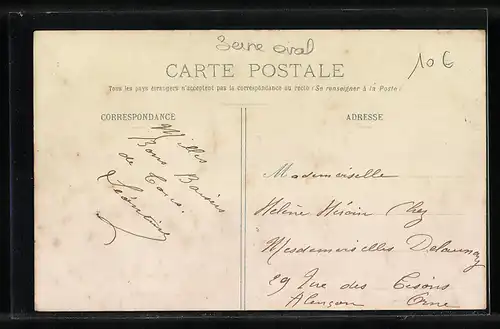 10 €
CARTE POSTALE
Tous les pays étrangers n'acceptent pas la correspondance au recto (Se renseigner à la Poste)
CORRESPONDANCE
ADRESSE
Milles
Bons Baisers
de Tous.
Léontine
Mademoiselle
Hélène Hérain Chez
Mesdemoiselles Delaunay
29 Rue des Tisons
Alençon Orne